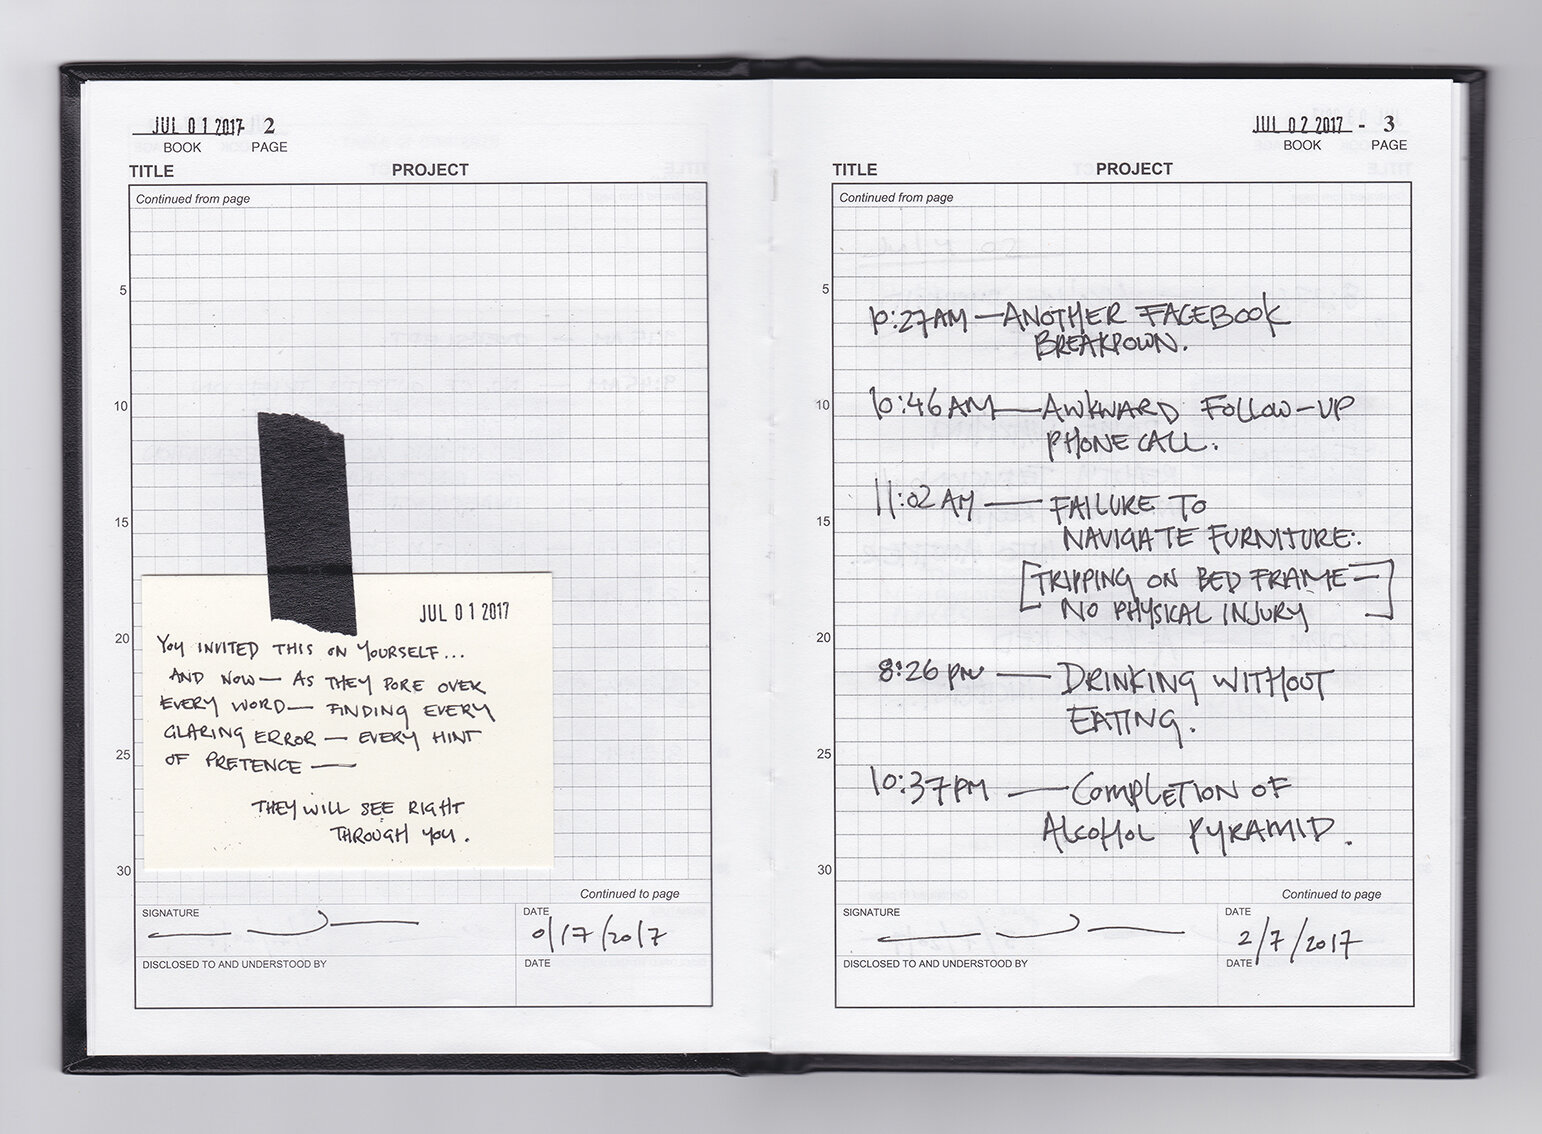 JUL 01 2017 2
BOOK PAGE
TITLE PROJECT
Continued from page
5
10
15
20
25
30
JUL 01 2017
YOU INVITED THIS ON YOURSELF...
AND NOW — AS THEY PORE OVER
EVERY WORD — FINDING EVERY
GLARING ERROR — EVERY HINT
OF PRETENCE —
THEY WILL SEE RIGHT
THROUGH YOU.
Continued to page
SIGNATURE DATE
01/7/2017
DISCLOSED TO AND UNDERSTOOD BY DATE
JUL 02 2017 - 3
BOOK PAGE
TITLE PROJECT
Continued from page
5
10
15
20
25
30
10:27AM — ANOTHER FACEBOOK
BREAKDOWN.
10:46AM — AWKWARD FOLLOW-UP
PHONE CALL.
11:02 AM — FAILURE TO
NAVIGATE FURNITURE.
[TRIPPING ON BED FRAME —
NO PHYSICAL INJURY]
8:26 PM — DRINKING WITHOUT
EATING.
10:37PM — COMPLETION OF
ALCOHOL PYRAMID.
Continued to page
SIGNATURE DATE
2/7/2017
DISCLOSED TO AND UNDERSTOOD BY DATE